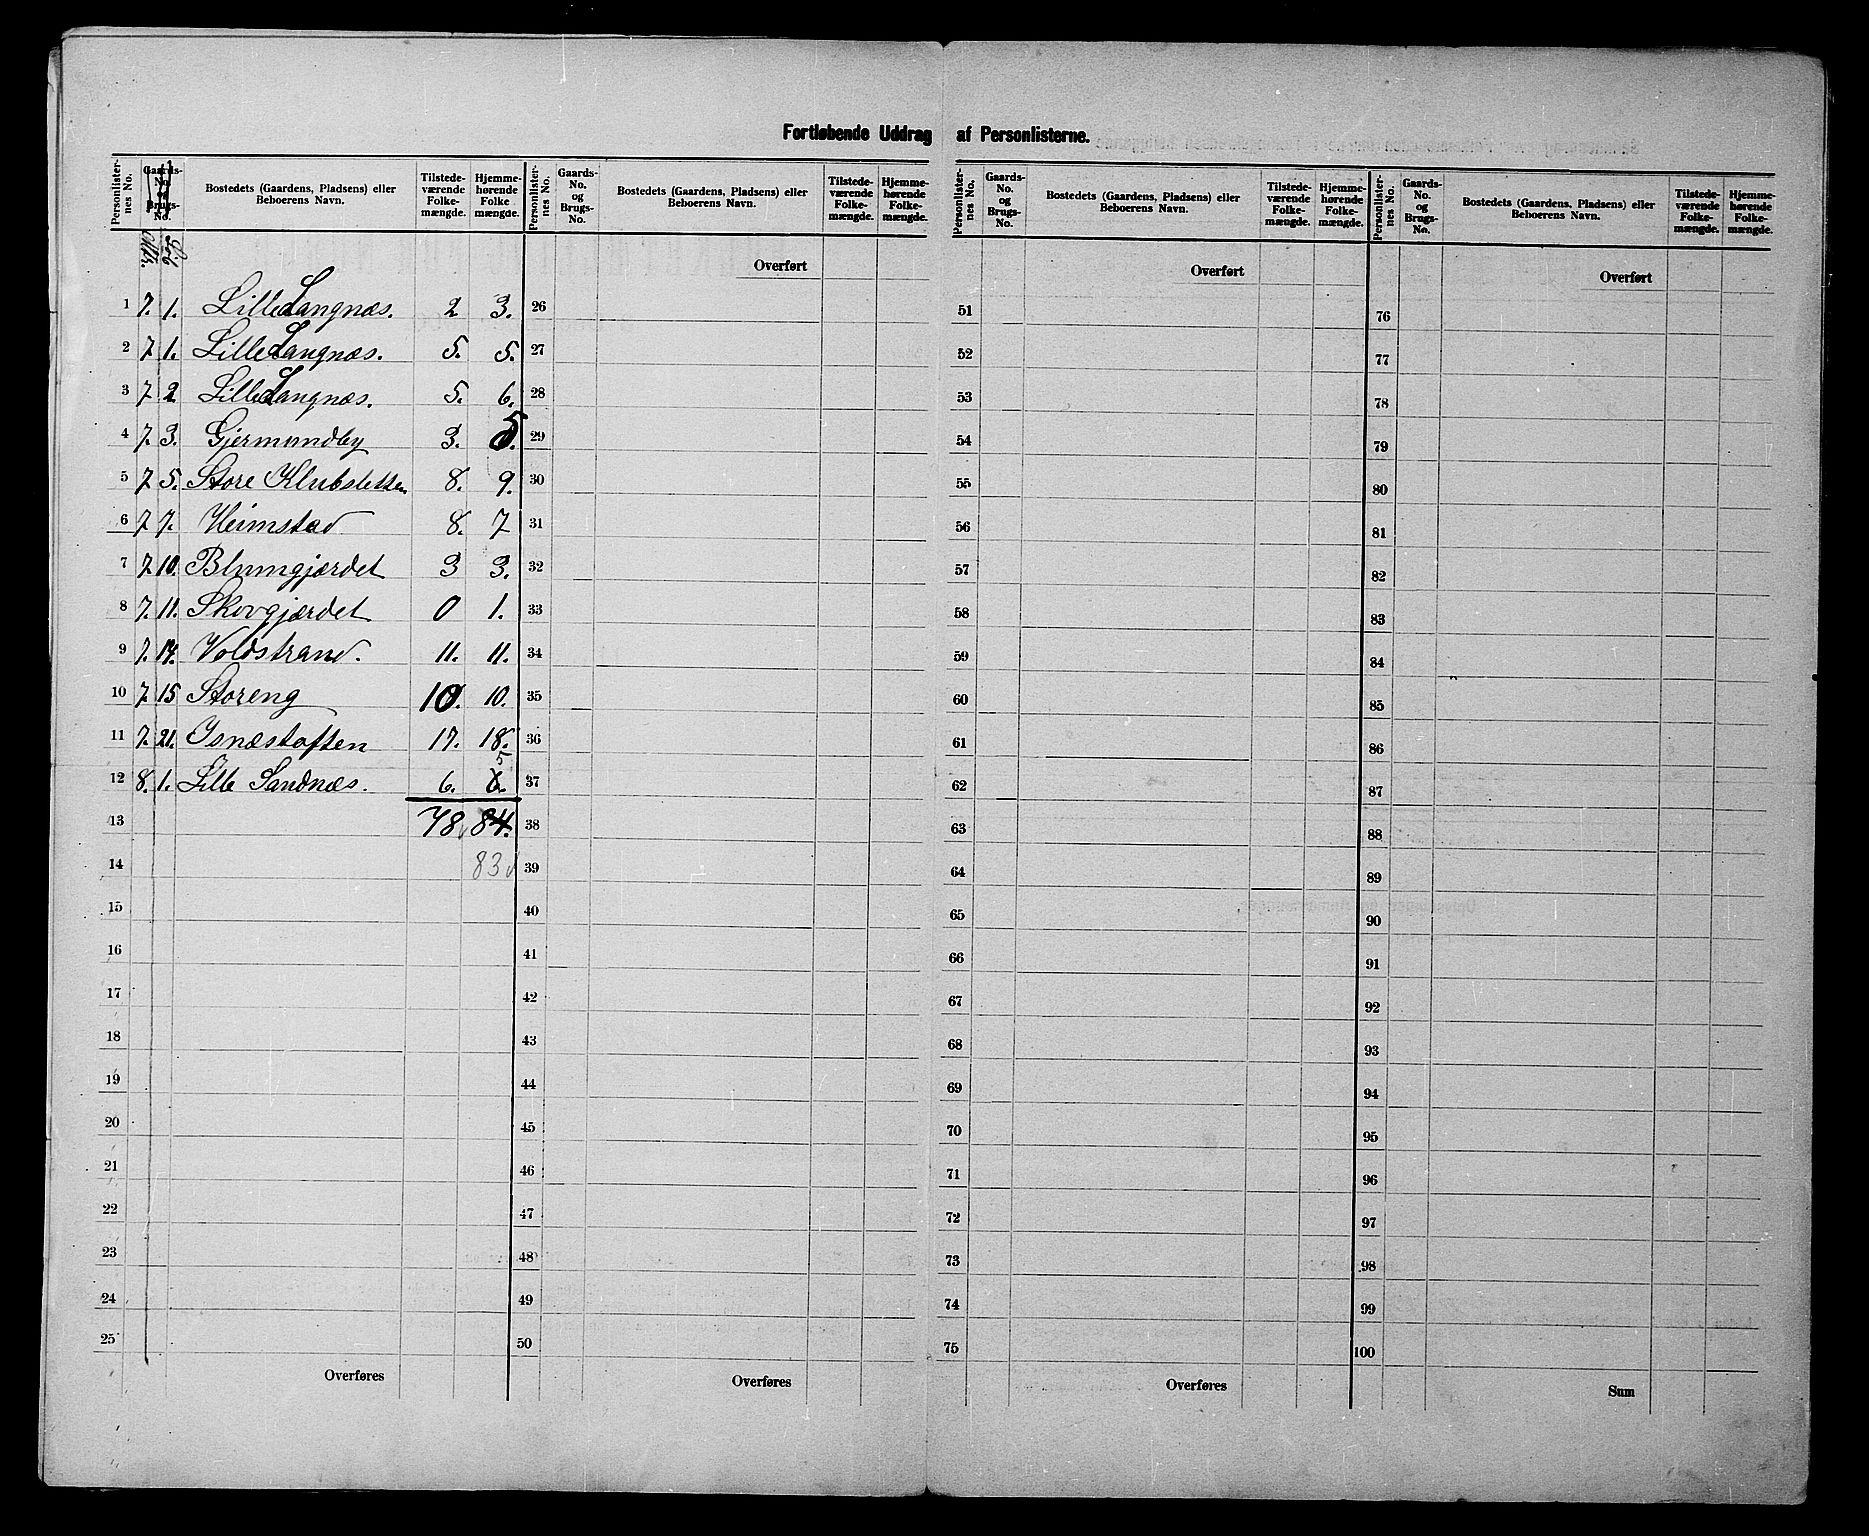 Fortløbende Uddrag af Personlisterne.
Personlisternes No. Gaards-No. og Brugs-No. Bostedets (Gaardens, Pladsens) eller Beboerens Navn. Tilstedeværende Folkemængde. Hjemmehørende Folkemængde. Personlisternes No. Gaards-No. og Brugs-No. Bostedets (Gaardens, Pladsens) eller Beboerens Navn. Tilstedeværende Folkemængde. Hjemmehørende Folkemængde. Personlisternes No. Gaards-No. og Brugs-No. Bostedets (Gaardens, Pladsens) eller Beboerens Navn. Tilstedeværende Folkemængde. Hjemmehørende Folkemængde. Personlisternes No. Gaards-No. og Brugs-No. Bostedets (Gaardens, Pladsens) eller Beboerens Navn. Tilstedeværende Folkemængde. Hjemmehørende Folkemængde.
Overført Overført Overført
1 7. 1. Lille Langnæs. 2 3. 26 51 76
2 7 1. Lille Langnæs. 5. 5. 27 52 77
3 7 2 Lille Langnæs. 5. 6. 28 53 78
4 7. 3. Gjermundby 3. 5. 29 54 79
5 7 5. Store Klubsletten 8. 9. 30 55 80
6 7 7. Heimstad 8. 7 31 56 81
7 7. 10. Blumgjærdet 3 3. 32 57 82
8 7. 11. Skovgjærdet 0 1. 33 58 83
9 7. 14. Voldstrand. 11. 11. 34 59 84
10 7. 15 Storeng 10. 10. 35 60 85
11 7. 21. Isnæstoften 17. 18. 36 61 86
12 8. 1. Lille Sandnæs. 6. 6. 5 37 62 87
13 78 84. 38 63 88
14 83 39 64 89
15 40 65 90
16 41 66 91
17 42 67 92
18 43 68 93
19 44 69 94
20 45 70 95
21 46 71 96
22 47 72 97
23 48 73 98
24 49 74 99
25 50 75 100
Overføres Overføres Overføres Sum